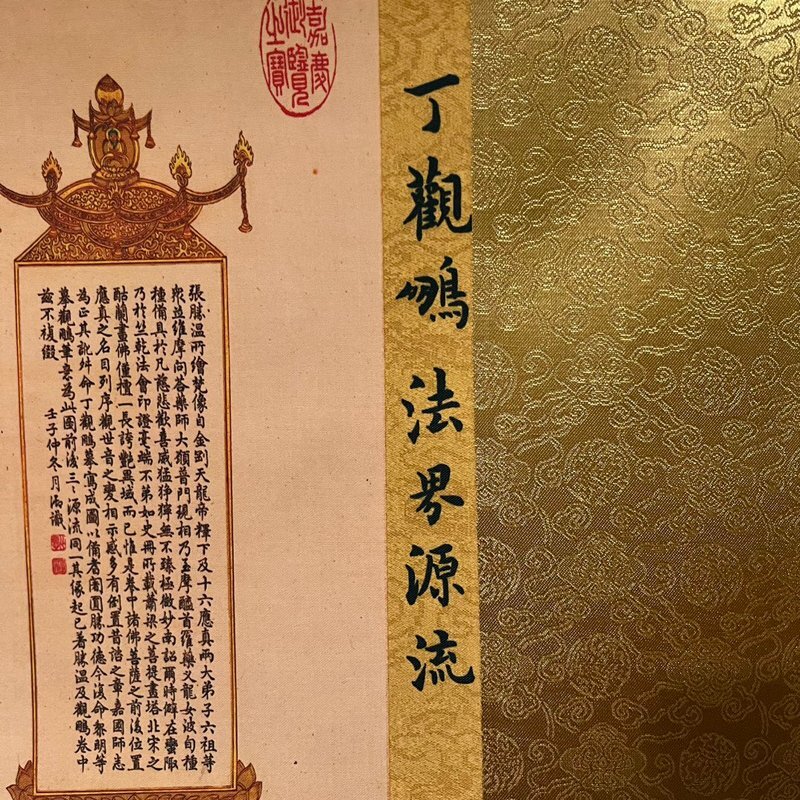 丁觀鵬法界源流
嘉慶
御覽
之寶
張勝温所繪梵像自金剛天龍帝釋下及十六應真兩大弟子六祖等
衆並維摩問答藥師大願普門現相乃至摩醯首羅藥义龍女波旬種
種備具於凡慈悲歡喜威猛猙獰無不臻極微妙南詔爾時僻在蠻陬
乃於竺乾法會印證毫端不弟如史冊所載蕭梁之菩提畫塔北宋之
酤蘭畫佛僅擅一長誇艷異域而已惟是卷中諸佛菩薩之前後位置
應真之名目列序觀世音之變相示感多有倒置昔諮之章嘉國師志
為正其訛舛命丁觀鵬摹寫成圖以備耆闍圓勝功德今復命黎明等
摹觀鵬筆意為此圖前後三〻源流同一其緣起已著勝温及觀鵬卷中
茲不複綴
壬子仲冬月御識